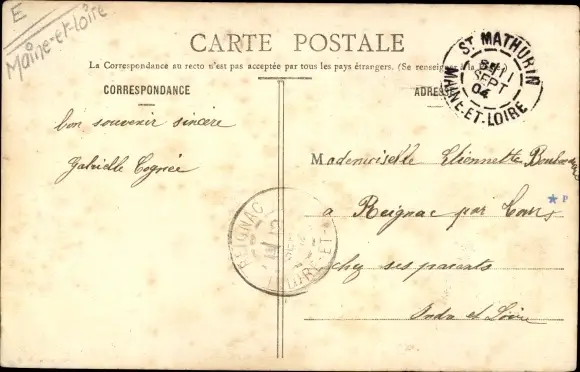 E
Maine-et-loire
CARTE POSTALE
La Correspondance au recto n'est pas acceptée par tous les pays étrangers. (Se renseigner à la
CORRESPONDANCE
ADRESSE
ST MATHURIN
11
SEPT
04
MAINE-ET-LOIRE
bon souvenir sincère
Gabrielle Cognée
Mademoiselle Etiennette
à Reignac par Cour
chez ses parents
Indre et Loire
REIGNAC
12
P